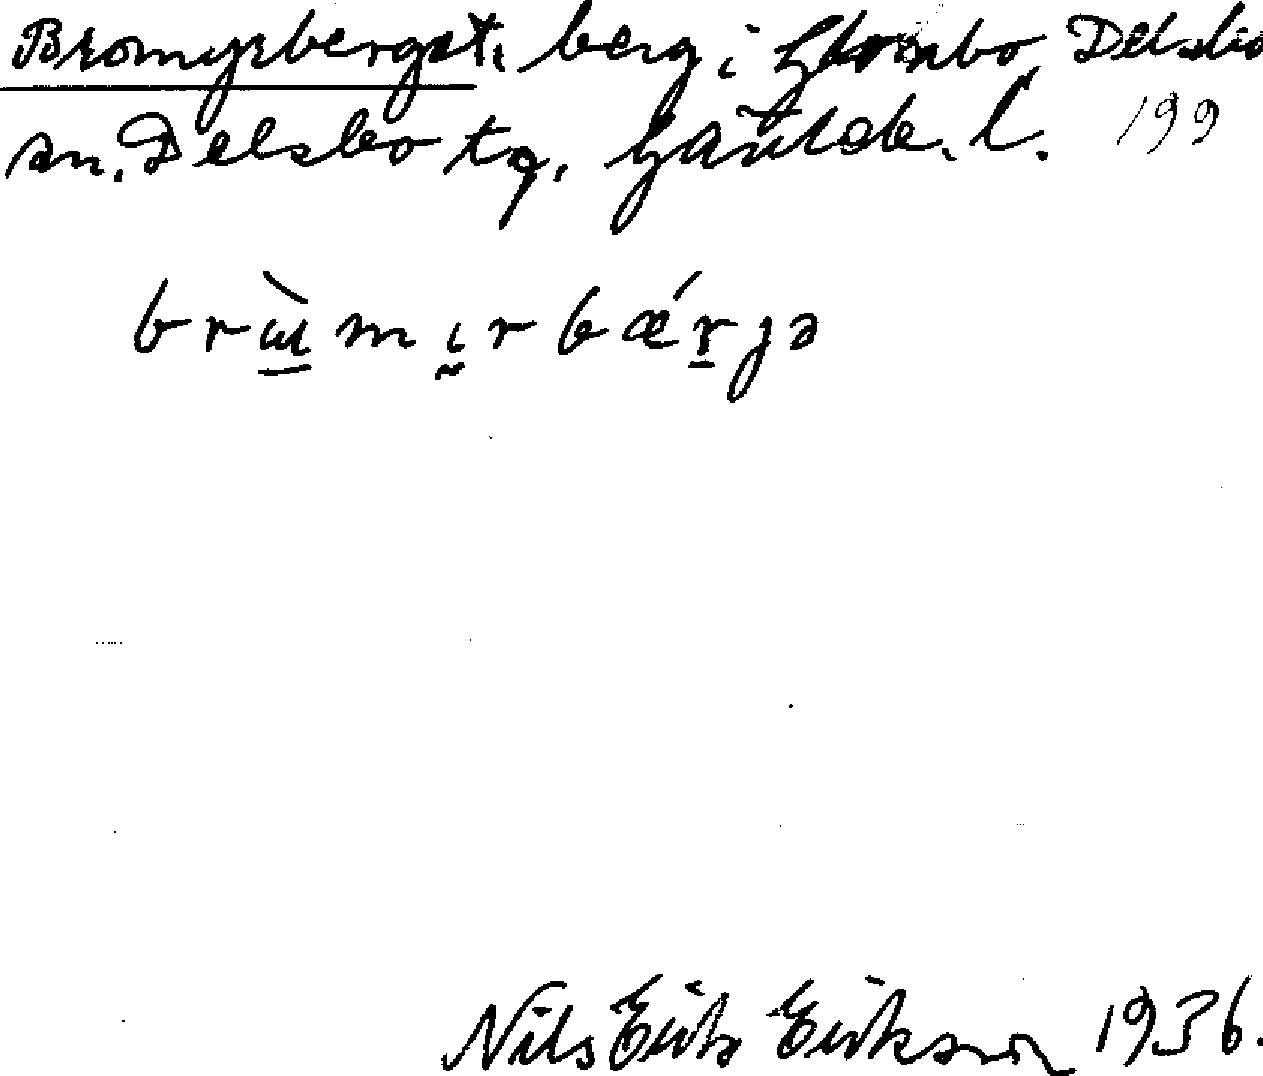 Bromyrberget, berg i Delsbo
sn. Delsbo tg. Gävleb. l. 199
brɯ̀mırbǽrɟə
Nils Erik Eriksson 1936.